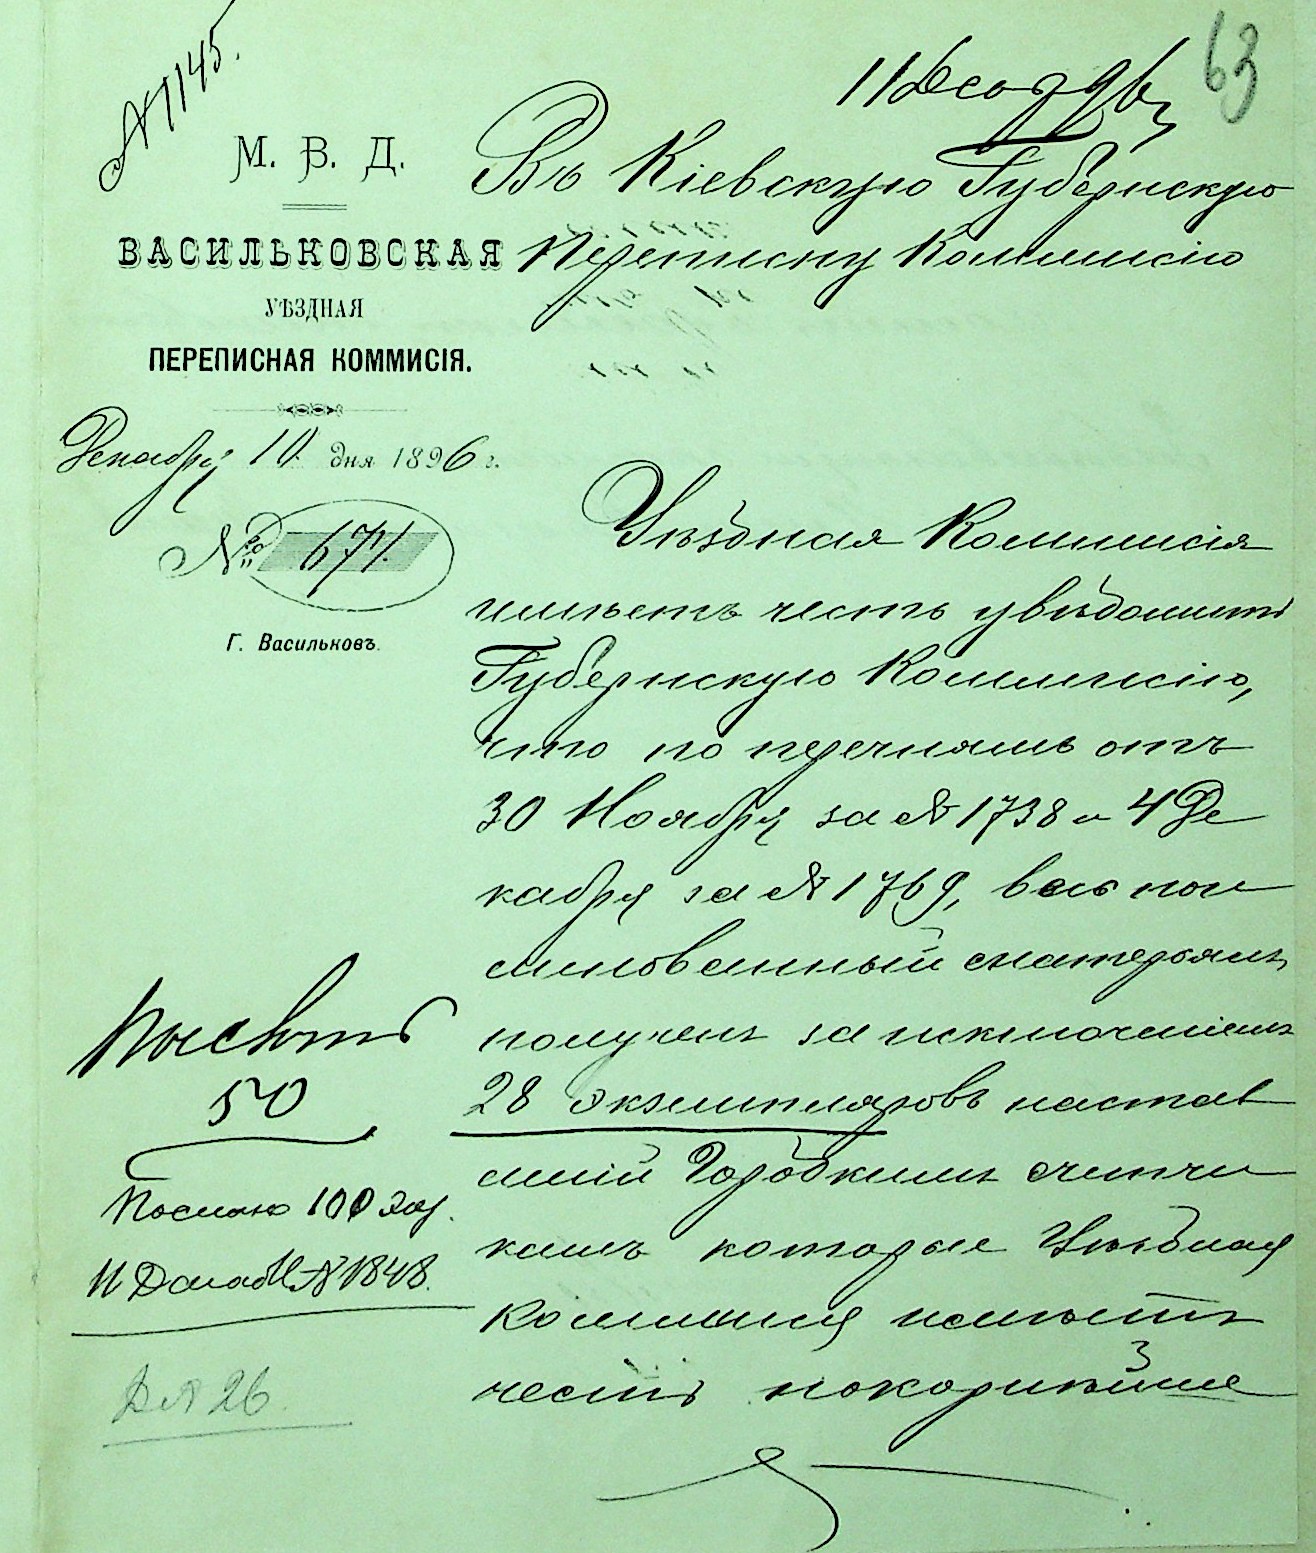 № 1145.
63
11 Дек 96
М. В. Д.
ВАСИЛЬКОВСКАЯ
УѢЗДНАЯ
ПЕРЕПИСНАЯ КОММИСІЯ.
Декабря 10 дня 1896 г.
№ 671.
Г. Васильковъ.
Въ Кіевскую Губернскую
Переписну Коммисію
Уѣздная Коммисія
имѣетъ честь увѣдомить
Губернскую Коммисію,
что по перечнямъ отъ
30 Ноября за № 1738 и 4 Де
кабря за № 1769, весь пои
мнованный матерьялъ
полученъ за исключеніемъ
28 экземпляровъ настав
леній Городскимъ счетчи
камъ которые Уѣздная
Коммисія имѣетъ
честь покорнѣйше
Выслать
50
Послано 100 экз.
11 Декаб № 1848.
№ 26